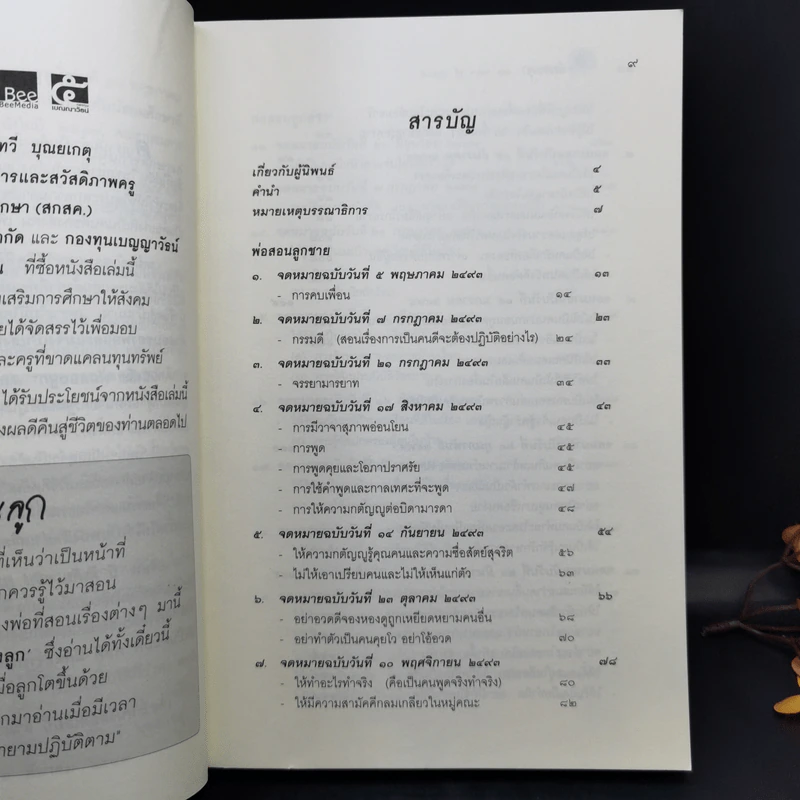 Bee
BeeMedia
เบญญาวัธน์
ทวี บุณยเกตุ
การและสวัสดิภาพครู
กษา (สกสค.)
และ กองทุนเบญญาวัธน์
ที่ซื้อหนังสือเล่มนี้
เสริมการศึกษาให้สังคม
ได้จัดสรรไว้เพื่อมอบ
และครูที่ขาดแคลนทุนทรัพย์
ได้รับประโยชน์จากหนังสือเล่มนี้
ผลดีคืนสู่ชีวิตของท่านตลอดไป
ลูก
ที่เห็นว่าเป็นหน้าที่
กควรรู้ไว้มาสอน
งพ่อที่สอนเรื่องต่างๆ มานี้
งลูก' ซึ่งอ่านได้ทั้งเดี๋ยวนี้
มื่อลูกโตขึ้นด้วย
กมาอ่านเมื่อมีเวลา
ายามปฏิบัติตาม"
๙
สารบัญ
เกี่ยวกับผู้นิพนธ์ ๔
คำนำ ๕
หมายเหตุบรรณาธิการ ๗
พ่อสอนลูกชาย
๑. จดหมายฉบับวันที่ ๕ พฤษภาคม ๒๔๙๓ ๑๓
- การคบเพื่อน ๑๔
๒. จดหมายฉบับวันที่ ๗ กรกฎาคม ๒๔๙๓ ๒๓
- กรรมดี (สอนเรื่องการเป็นคนดีจะต้องปฏิบัติอย่างไร) ๒๔
๓. จดหมายฉบับวันที่ ๒๑ กรกฎาคม ๒๔๙๓ ๓๓
- จรรยามารยาท ๓๔
๔. จดหมายฉบับวันที่ ๑๗ สิงหาคม ๒๔๙๓ ๔๓
- การมีวาจาสุภาพอ่อนโยน ๔๕
- การพูด ๔๕
- การพูดคุยและโอภาปราศรัย ๔๕
- การใช้คำพูดและกาลเทศะที่จะพูด ๔๗
- การให้ความกตัญญูต่อบิดามารดา ๔๘
๕. จดหมายฉบับวันที่ ๑๔ กันยายน ๒๔๙๓ ๕๔
- ให้ความกตัญญูรู้คุณคนและความซื่อสัตย์สุจริต ๕๖
- ไม่ให้เอาเปรียบคนและไม่ให้เห็นแก่ตัว ๖๓
๖. จดหมายฉบับวันที่ ๒๓ ตุลาคม ๒๔๙๓ ๖๖
- อย่าอวดดีจองหองดูถูกเหยียดหยามคนอื่น ๖๘
- อย่าทำตัวเป็นคนคุยโว อย่าโอ้อวด ๗๐
๗. จดหมายฉบับวันที่ ๑๐ พฤศจิกายน ๒๔๙๓ ๗๘
- ให้ทำอะไรทำจริง (คือเป็นคนพูดจริงทำจริง) ๘๐
- ให้มีความสามัคคีกลมเกลียวในหมู่คณะ ๘๒